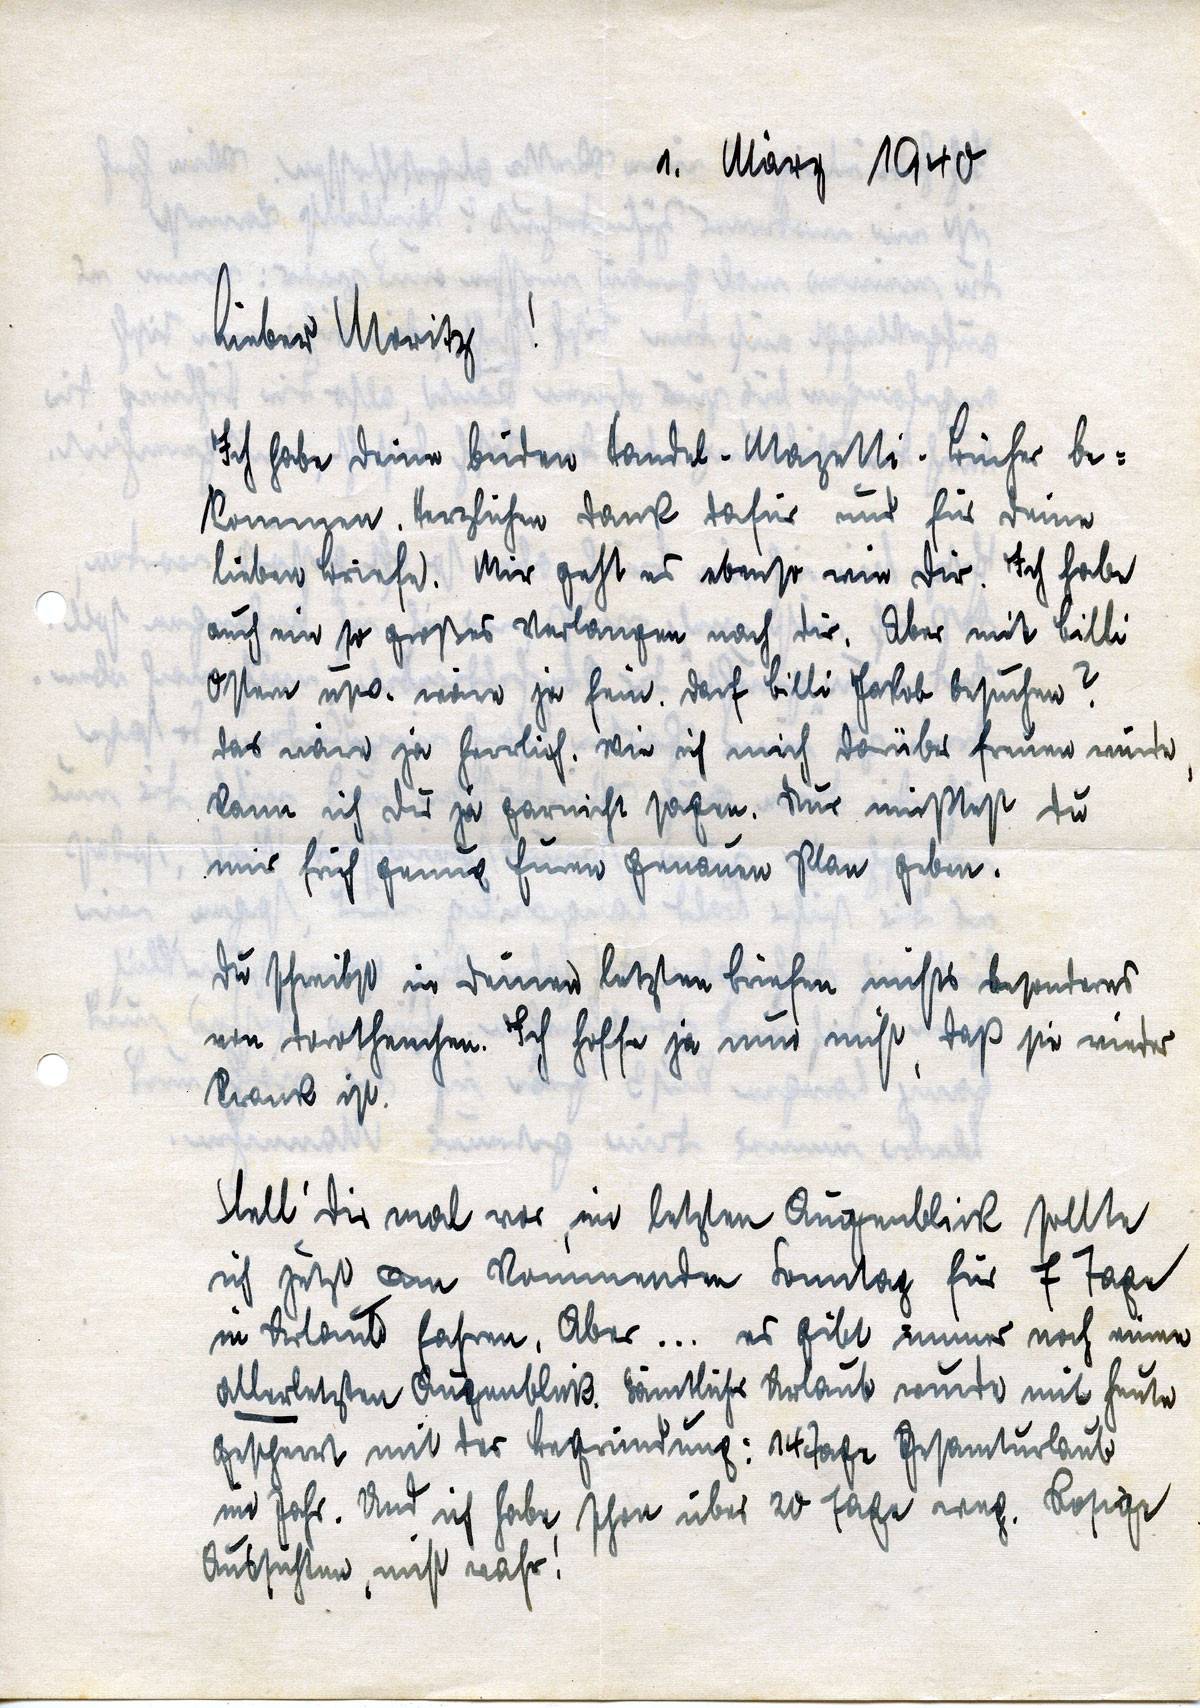 1. März 1940
Lieber Moritz!
Ich habe Deine beiden Handel-Mazetti-Bücher be=
kommen. Herzlichen Dank dafür und für Deine
lieben Briefe. Mir geht es ebenso wie Dir. Ich habe
auch ein so großes Verlangen nach Dir. Aber mit Billi
Ostern usw. wäre ja fein. Darf Billi Jakob besuchen?
Das wäre ja herrlich. Wie ich mich darüber freuen würde,
kann ich Dir ja garnicht sagen. Nur müßtest Du
mir früh genug Euren genauen Plan geben.
Du schreibst in Deinen letzten Briefen nichts besonderes
von Dorothenchen. Ich hoffe ja nun nicht, daß sie wieder
krank ist.
Stell' Dir mal vor, im letzten Augenblick sollte
ich jetzt am kommenden Sonntag für 7 Tage
in Urlaub fahren. Aber ... es gibt immer noch einen
allerletzten Augenblick. Sämtlicher Urlaub wurde mit heute
gesperrt mit der Begründung: 14 Tage Gesamturlaub
im Jahr. Und ich habe schon über 20 Tage weg. Rosige
Aussichten, nicht wahr!